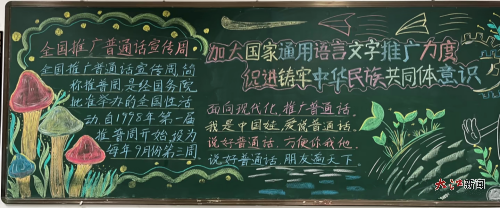 全国推广普通话宣传周
全国推广普通话宣传周,简
称推普周是经国务院
批准举办的全国性活
动,自1998年第一届
推普周开始,定为
每年9月份第三周.
加大国家通用语言文字推广力度
促进铸牢中华民族共同体意识
面向现代化,推广普通话.
我是中国娃,爱说普通话
说好普通话,方便你我他.
说好普通话 朋友遍天下
新闻